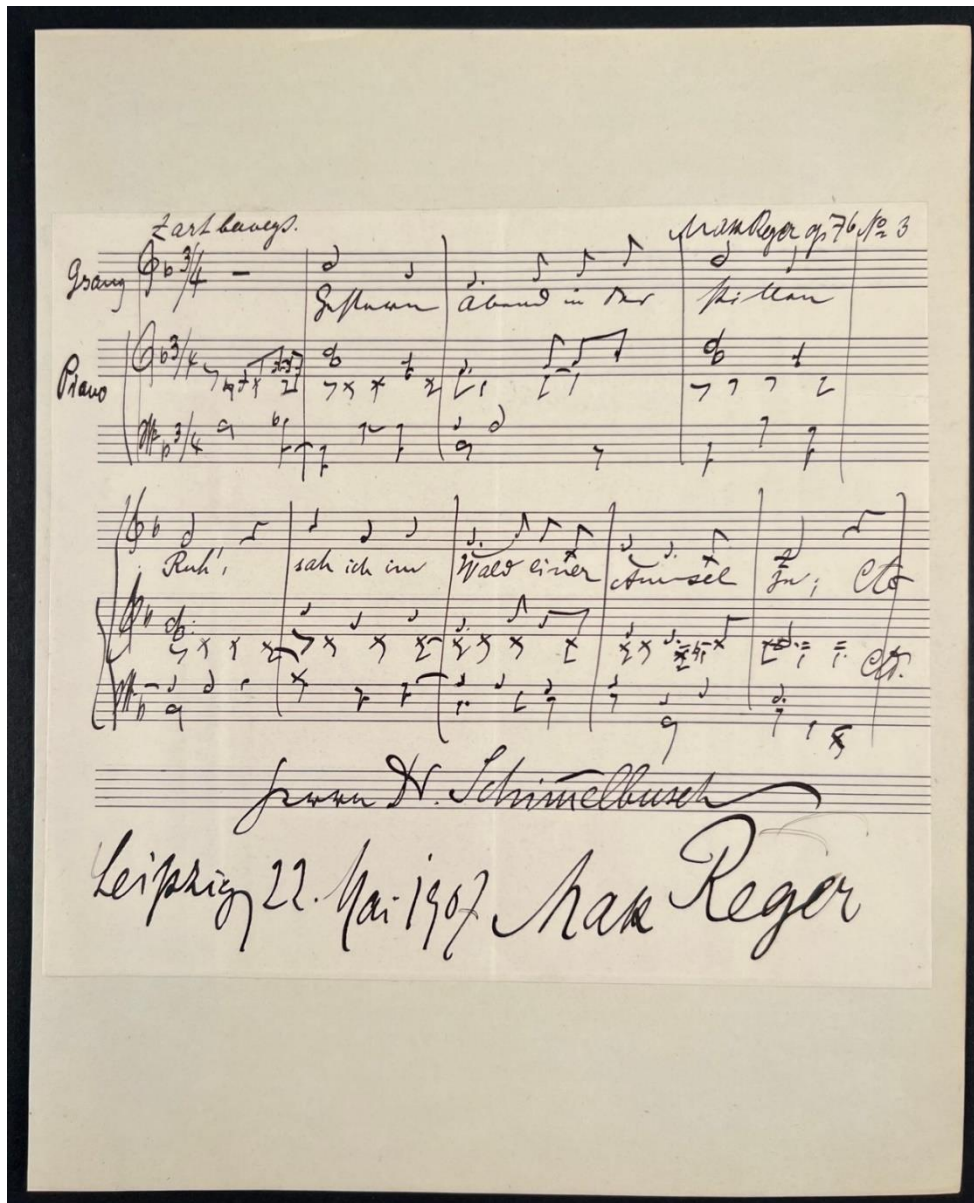 Zart bewegt. Max Reger op 76 No 3
Gesang 3/4
Gestern Abend in der stillen
Piano 3/4
3/4
Ruh', sah ich im Wald einer Amsel zu; etc
etc.
Herrn Dr. Schimelbusch
Leipzig, 22. Mai 1907 Max Reger